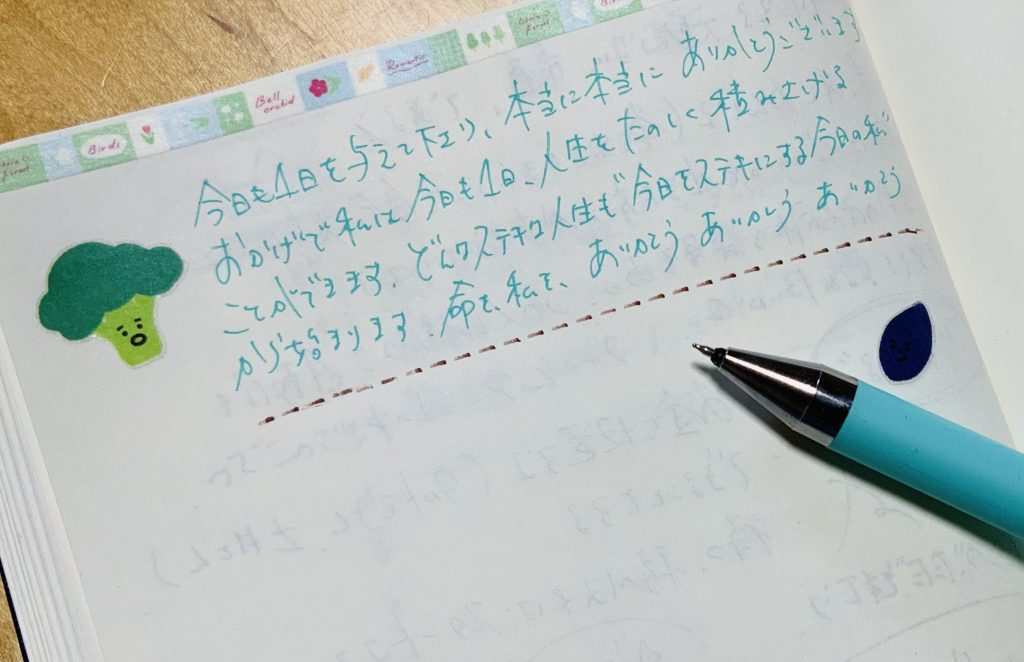 Birds
Bell orchid
Romantic
Little Forest
今日も1日を与えて下さり、本当に本当に ありがとうございます
おかげで私は今日も1日、人生をたのしく積み上げる
ことができます。どんなステキな人生も“今日をステキにする今日の私”
から始まります。命を、私を、ありがとう ありがとう ありがとう